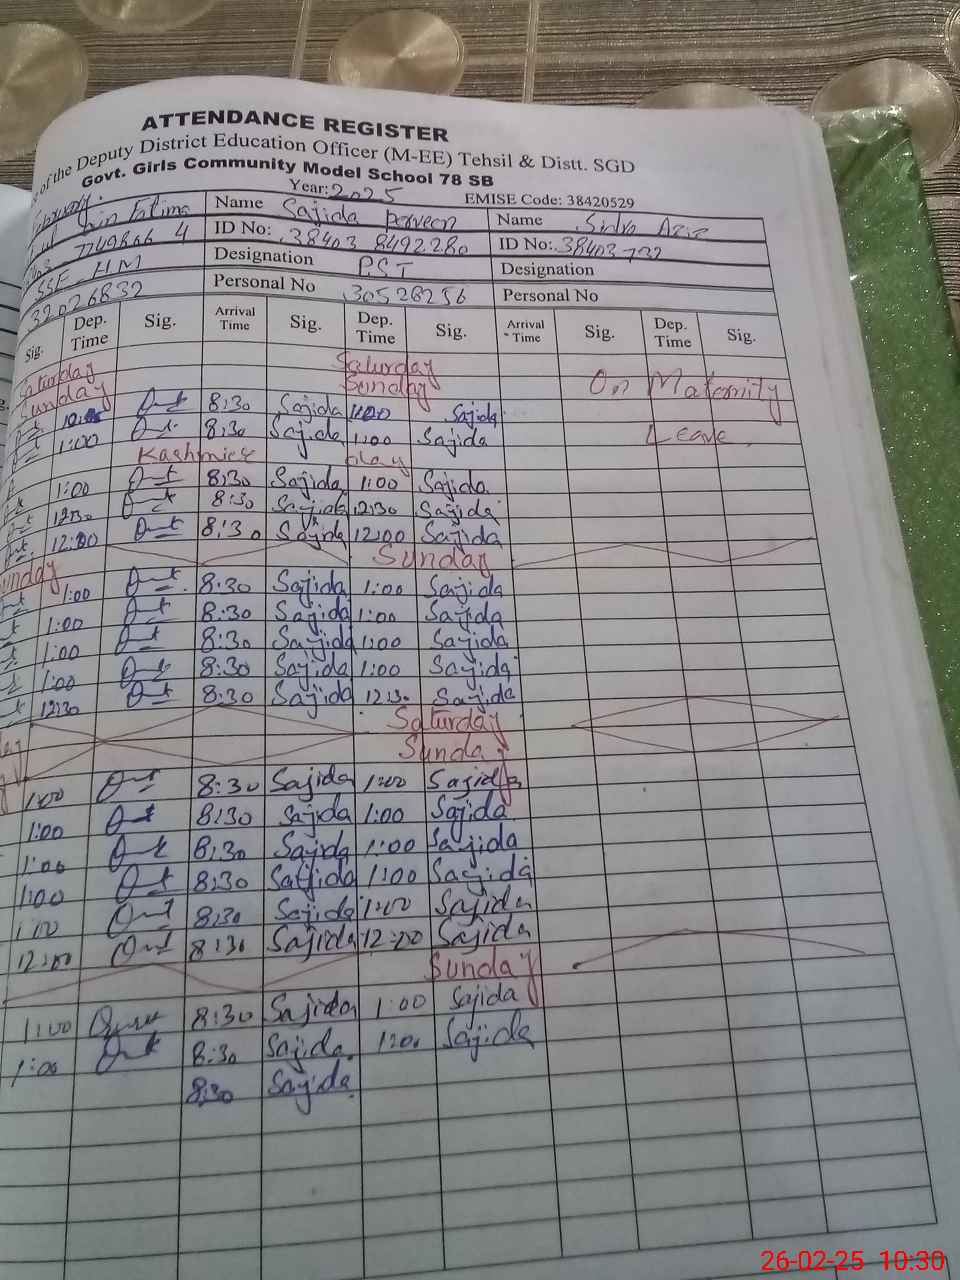 ATTENDANCE REGISTER
of the Deputy District Education Officer (M-EE) Tehsil & Distt. SGD
Govt. Girls Community Model School 78 SB
Year: 2025 EMISE Code: 38420529
Name Sajida perveen Name Sidra Aziz
ID No: 38403 8492280 ID No: 38403732
Designation PST Designation
32026832 Personal No 30528256 Personal No
Sig. Dep. Time Sig. Arrival Time Sig. Dep. Time Sig. Arrival Time Sig. Dep. Time Sig.
Saturday Saturday
Sunday Sunday On Maternity
8:30 Sajida 1:00 Sajida
1:00 8:30 Sajida 1:00 Sajida Leave
Kashmier Day
1:00 8:30 Sajida 1:00 Sajida
12:30 8:30 Sajida 12:30 Sajida
12:00 8:30 Sajida 12:00 Sajida
Sunday Sunday
1:00 8:30 Sajida 1:00 Sajida
1:00 8:30 Sajida 1:00 Sajida
1:00 8:30 Sajida 1:00 Sajida
1:00 8:30 Sajida 1:00 Sajida
12:30 8:30 Sajida 12:30 Sajida
Saturday
Sunday
1:00 8:30 Sajida 1:00 Sajida
1:00 8:30 Sajida 1:00 Sajida
1:00 8:30 Sajida 1:00 Sajida
1:00 8:30 Sajida 1:00 Sajida
1:00 8:30 Sajida 1:00 Sajida
12:00 8:30 Sajida 12:00 Sajida
Sunday
1:00 8:30 Sajida 1:00 Sajida
1:00 8:30 Sajida 1:00 Sajida
8:30 Sajida
26-02-25 10:30